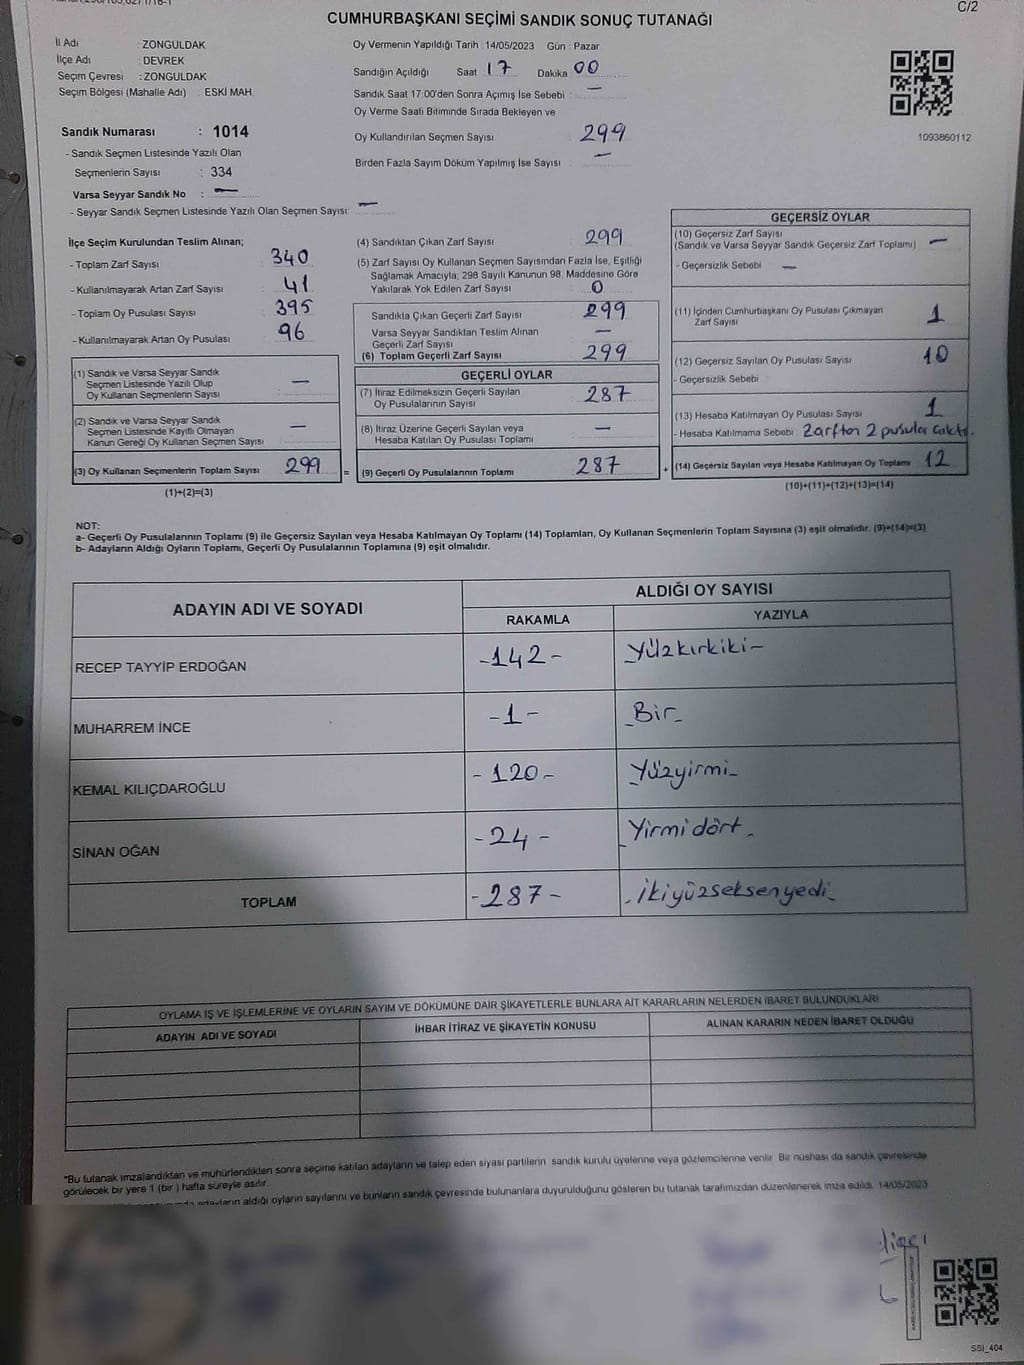 C/2
CUMHURBAŞKANI SEÇİMİ SANDIK SONUÇ TUTANAĞI
İl Adı : ZONGULDAK
İlçe Adı : DEVREK
Seçim Çevresi : ZONGULDAK
Seçim Bölgesi (Mahalle Adı) : ESKİ MAH.
Sandık Numarası : 1014
- Sandık Seçmen Listesinde Yazılı Olan
Seçmenlerin Sayısı : 334
Varsa Seyyar Sandık No : —
- Seyyar Sandık Seçmen Listesinde Yazılı Olan Seçmen Sayısı: —
Oy Vermenin Yapıldığı Tarih : 14/05/2023 Gün : Pazar
Sandığın Açıldığı Saat 17 Dakika 00
Sandık Saat 17:00'den Sonra Açımış İse Sebebi : —
Oy Verme Saati Bitiminde Sırada Bekleyen ve
Oy Kullandırılan Seçmen Sayısı : 299
Birden Fazla Sayım Döküm Yapılmış İse Sayısı : —
1093860112
İlçe Seçim Kurulundan Teslim Alınan;
- Toplam Zarf Sayısı : 340
- Kullanılmayarak Artan Zarf Sayısı : 41
- Toplam Oy Pusulası Sayısı : 395
- Kullanılmayarak Artan Oy Pusulası : 96
(1) Sandık ve Varsa Seyyar Sandık
Seçmen Listesinde Yazılı Olup
Oy Kullanan Seçmenlerin Sayısı : —
(2) Sandık ve Varsa Seyyar Sandık
Seçmen Listesinde Kayıtlı Olmayan
Kanun Gereği Oy Kullanan Seçmen Sayısı : —
(3) Oy Kullanan Seçmenlerin Toplam Sayısı : 299 =
(1)+(2)=(3)
(4) Sandıktan Çıkan Zarf Sayısı : 299
(5) Zarf Sayısı Oy Kullanan Seçmen Sayısından Fazla İse, Eşitliği
Sağlamak Amacıyla; 298 Sayılı Kanunun 98. Maddesine Göre
Yakılarak Yok Edilen Zarf Sayısı : 0
Sandıkta Çıkan Geçerli Zarf Sayısı : 299
Varsa Seyyar Sandıktan Teslim Alınan
Geçerli Zarf Sayısı : —
(6) Toplam Geçerli Zarf Sayısı : 299
GEÇERLİ OYLAR
(7) İtiraz Edilmeksizin Geçerli Sayılan
Oy Pusulalarının Sayısı : 287
(8) İtiraz Üzerine Geçerli Sayılan veya
Hesaba Katılan Oy Pusulası Toplamı : —
(9) Geçerli Oy Pusulalarının Toplamı : 287 +
GEÇERSİZ OYLAR
(10) Geçersiz Zarf Sayısı
(Sandık ve Varsa Seyyar Sandık Geçersiz Zarf Toplamı) : —
- Geçersizlik Sebebi : —
(11) İçinden Cumhurbaşkanı Oy Pusulası Çıkmayan
Zarf Sayısı : 1
(12) Geçersiz Sayılan Oy Pusulası Sayısı : 10
- Geçersizlik Sebebi :
(13) Hesaba Katılmayan Oy Pusulası Sayısı : 1
- Hesaba Katılmama Sebebi : Zarftan 2 pusula çıktı.
(14) Geçersiz Sayılan veya Hesaba Katılmayan Oy Toplamı : 12
(10)+(11)+(12)+(13)=(14)
NOT:
a- Geçerli Oy Pusulalarının Toplamı (9) ile Geçersiz Sayılan veya Hesaba Katılmayan Oy Toplamı (14) Toplamları, Oy Kullanan Seçmenlerin Toplam Sayısına (3) eşit olmalıdır. (9)+(14)=(3)
b- Adayların Aldığı Oyların Toplamı, Geçerli Oy Pusulalarının Toplamına (9) eşit olmalıdır.
ADAYIN ADI VE SOYADI
ALDIĞI OY SAYISI
RAKAMLA YAZIYLA
RECEP TAYYİP ERDOĞAN -142- -Yüzkırkiki-
MUHARREM İNCE -1- -Bir-
KEMAL KILIÇDAROĞLU -120- -Yüzyirmi-
SİNAN OĞAN -24- -Yirmidört-
TOPLAM -287- -İkiyüzseksenyedi-
OYLAMA İŞ VE İŞLEMLERİNE VE OYLARIN SAYIM VE DÖKÜMÜNE DAİR ŞİKAYETLERLE BUNLARA AİT KARARLARIN NELERDEN İBARET BULUNDUKLARI
ADAYIN ADI VE SOYADI İHBAR İTİRAZ VE ŞİKAYETİN KONUSU ALINAN KARARIN NEDEN İBARET OLDUĞU
*Bu tutanak imzalandıktan ve mühürlendikten sonra seçime katılan adayların ve talep eden siyasi partilerin sandık kurulu üyelerine veya gözlemcilerine verilir. Bir nüshası da sandık çevresinde
görülecek bir yere 1 (bir) hafta süreyle asılır.
adayların aldığı oyların sayılarını ve bunların sandık çevresinde bulunanlara duyurulduğunu gösteren bu tutanak tarafımızdan düzenlenerek imza edildi. 14/05/2023
SSI_404